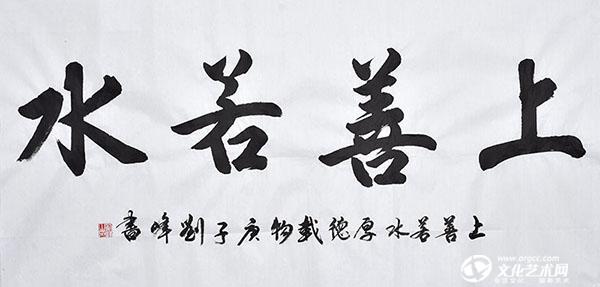 上善若水
上善若水厚德载物庚子刘峰书
www.orgcc.com
文化艺术网